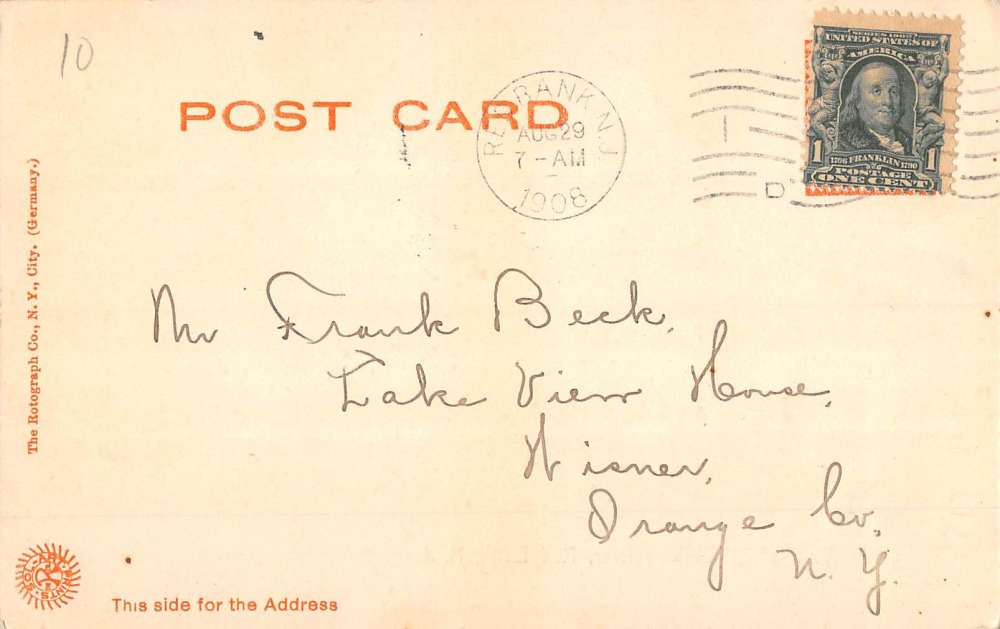 10
POST CARD
RED BANK N.J.
AUG 29
7-AM
1908
D
SERIES 1902
UNITED STATES OF
AMERICA
1 1706 FRANKLIN 1790 1
POSTAGE
ONE CENT
Mr Frank Beck,
Lake View House,
Wisner,
Orange Co,
N. Y.
The Rotograph Co., N. Y., City. (Germany.)
SOL-ART PRINTS
This side for the Address